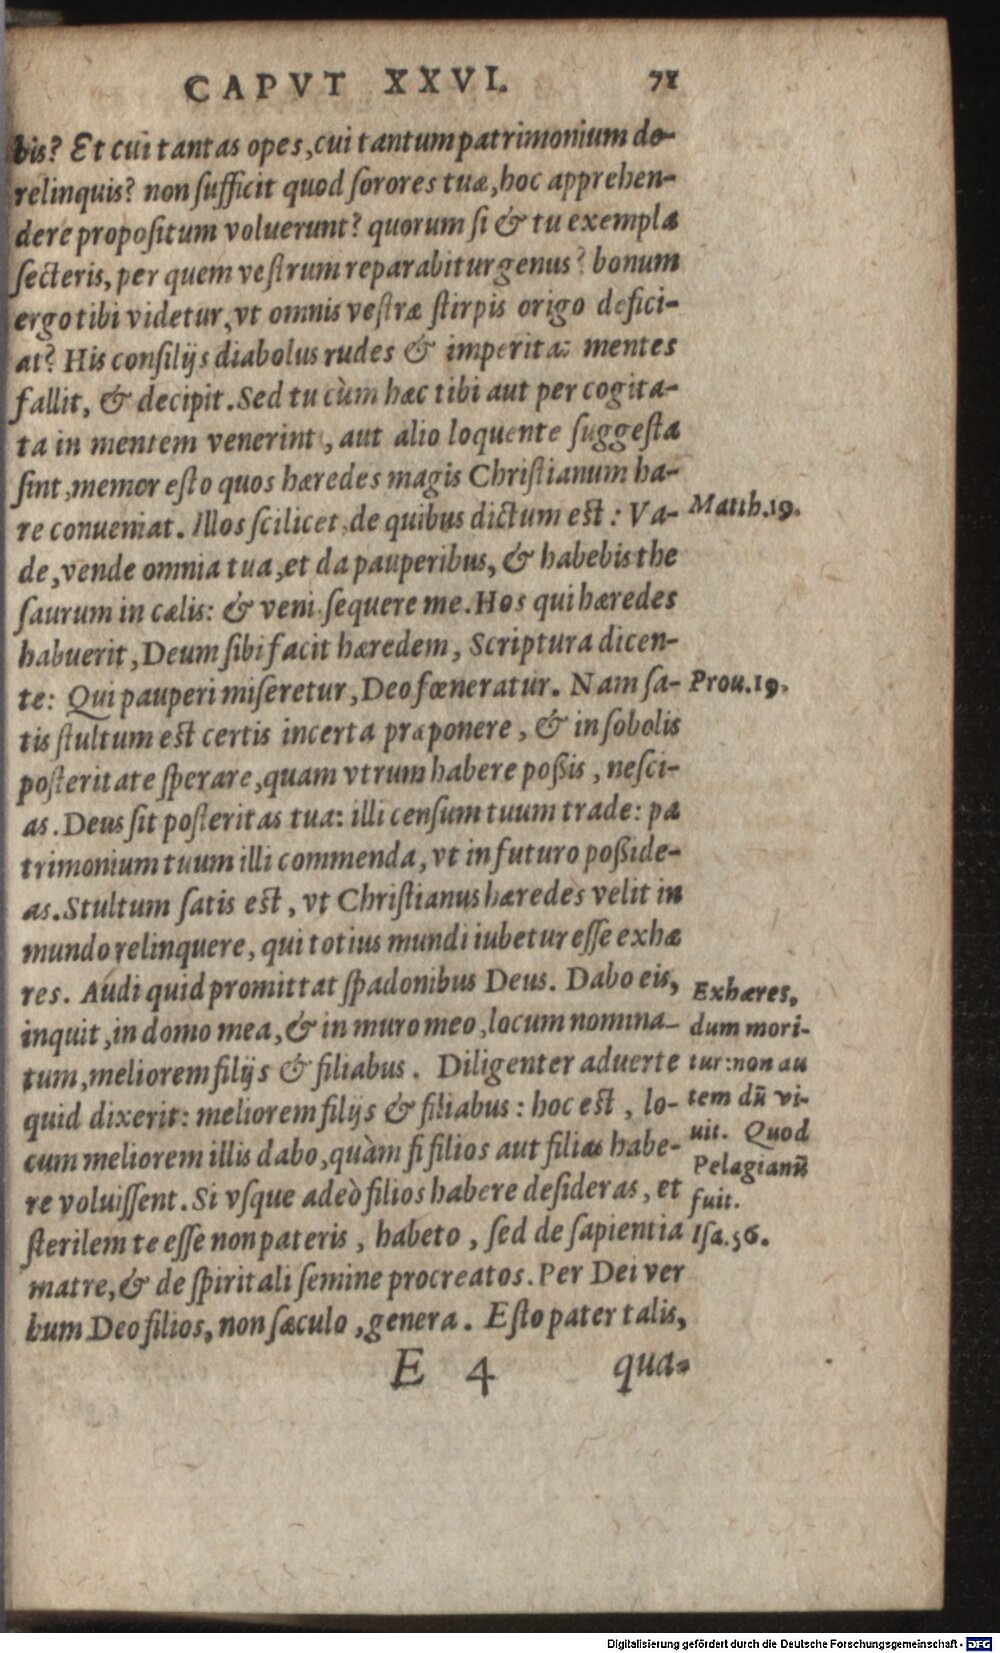 CAPVT XXVI. 71
bis? Et cui tantas opes, cui tantum patrimonium de-
relinquis? non ſufficit quod ſorores tuæ, hoc apprehen-
dere propoſitum voluerunt? quorum ſi & tu exempla
ſecteris, per quem veſtrum reparabitur genus? bonum
ergo tibi videtur, vt omnis veſtræ ſtirpis origo defici-
at? His conſilijs diabolus rudes & imperitas mentes
fallit, & decipit. Sed tu cùm hæc tibi aut per cogita-
ta in mentem venerint, aut alio loquente ſuggeſta
ſint, memor eſto quos hæredes magis Chriſtianum ha-
re conueniat. Illos ſcilicet, de quibus dictum eſt: Va-
Matth.19.
de, vende omnia tua, et da pauperibus, & habebis the
ſaurum in cælis: & veni ſequere me. Hos qui hæredes
habuerit, Deum ſibi facit hæredem, Scriptura dicen-
te: Qui pauperi miſeretur, Deo fœneratur. Nam ſa-
Prou.19.
tis ſtultum eſt certis incerta præponere, & in ſobolis
poſteritate ſperare, quam vtrum habere poßis, neſci-
as. Deus ſit poſteritas tua: illi cenſum tuum trade: pa
trimonium tuum illi commenda, vt in futuro poßide-
as. Stultum ſatis eſt, vt Chriſtianus hæredes velit in
mundo relinquere, qui totius mundi iubetur eſſe exhæ
res. Audi quid promittat ſpadonibus Deus. Dabo eis,
inquit, in domo mea, & in muro meo, locum nomina-
tum, meliorem filijs & filiabus. Diligenter aduerte
quid dixerit: meliorem filijs & filiabus: hoc eſt, lo-
cum meliorem illis dabo, quàm ſi filios aut filias habe-
re voluiſſent. Si vſque adeò filios habere deſideras, et
ſterilem te eſſe non pateris, habeto, ſed de ſapientia
matre, & de ſpiritali ſemine procreatos. Per Dei ver
bum Deo filios, non ſæculo, genera. Eſto pater talis,
Exhæres,
dum mori-
tur: non au
tem dũ vi-
uit. Quod
Pelagianũ
fuit.
Iſa.56.
E 4 qua-
Digitalisierung gefördert durch die Deutsche Forschungsgemeinschaft - DFG